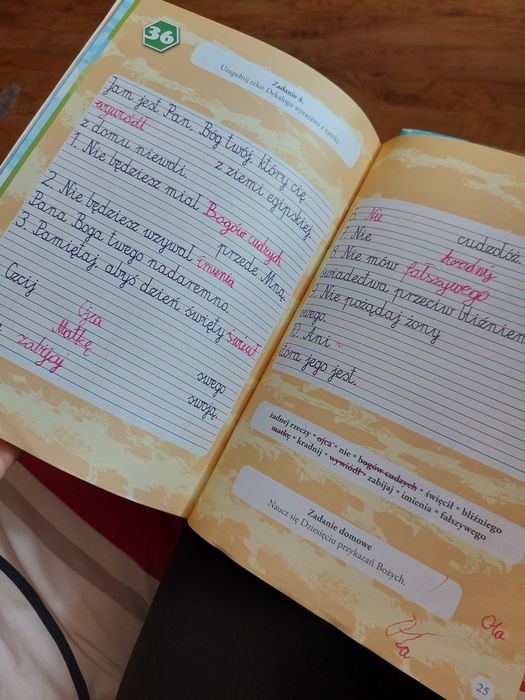 36
Zadanie 4.
Uzupełnij tekst Dekalogu wyrazami z ramki.
Jam jest Pan, Bóg twój, który cię
wywiódł z ziemi egipskiej
z domu niewoli.
1. Nie będziesz miał Bogów cudzych
przede Mną.
2. Nie będziesz wzywał imienia
Pana Boga twego nadaremno.
3. Pamiętaj, abyś dzień święty święcił
Czcij Ojca swego
Matkę swoją.
zabijaj
6. Nie cudzołóż.
7. Nie kradnij
8. Nie mów fałszywego
świadectwa przeciw bliźniem
9. Nie pożądaj żony
swego
Ani
która jego jest.
żadnej rzeczy • ojca • nie • bogów cudzych • święcił • bliźniego
matkę • kradnij • wywiódł • zabijaj • imienia • fałszywego
Zadanie domowe
Naucz się Dziesięciu przykazań Bożych.
Ola
25